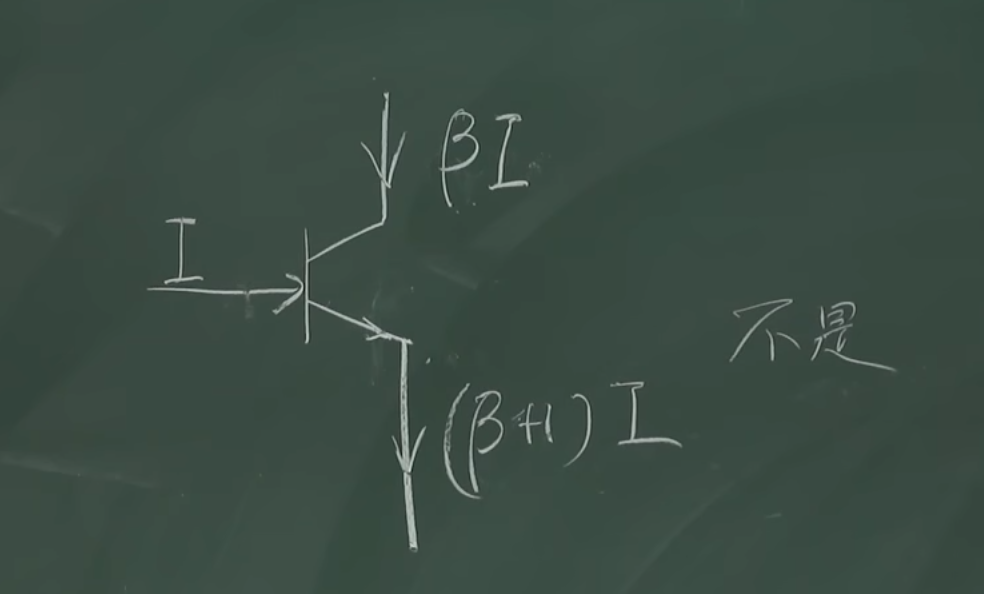 βI
I
不是
(β+1)I